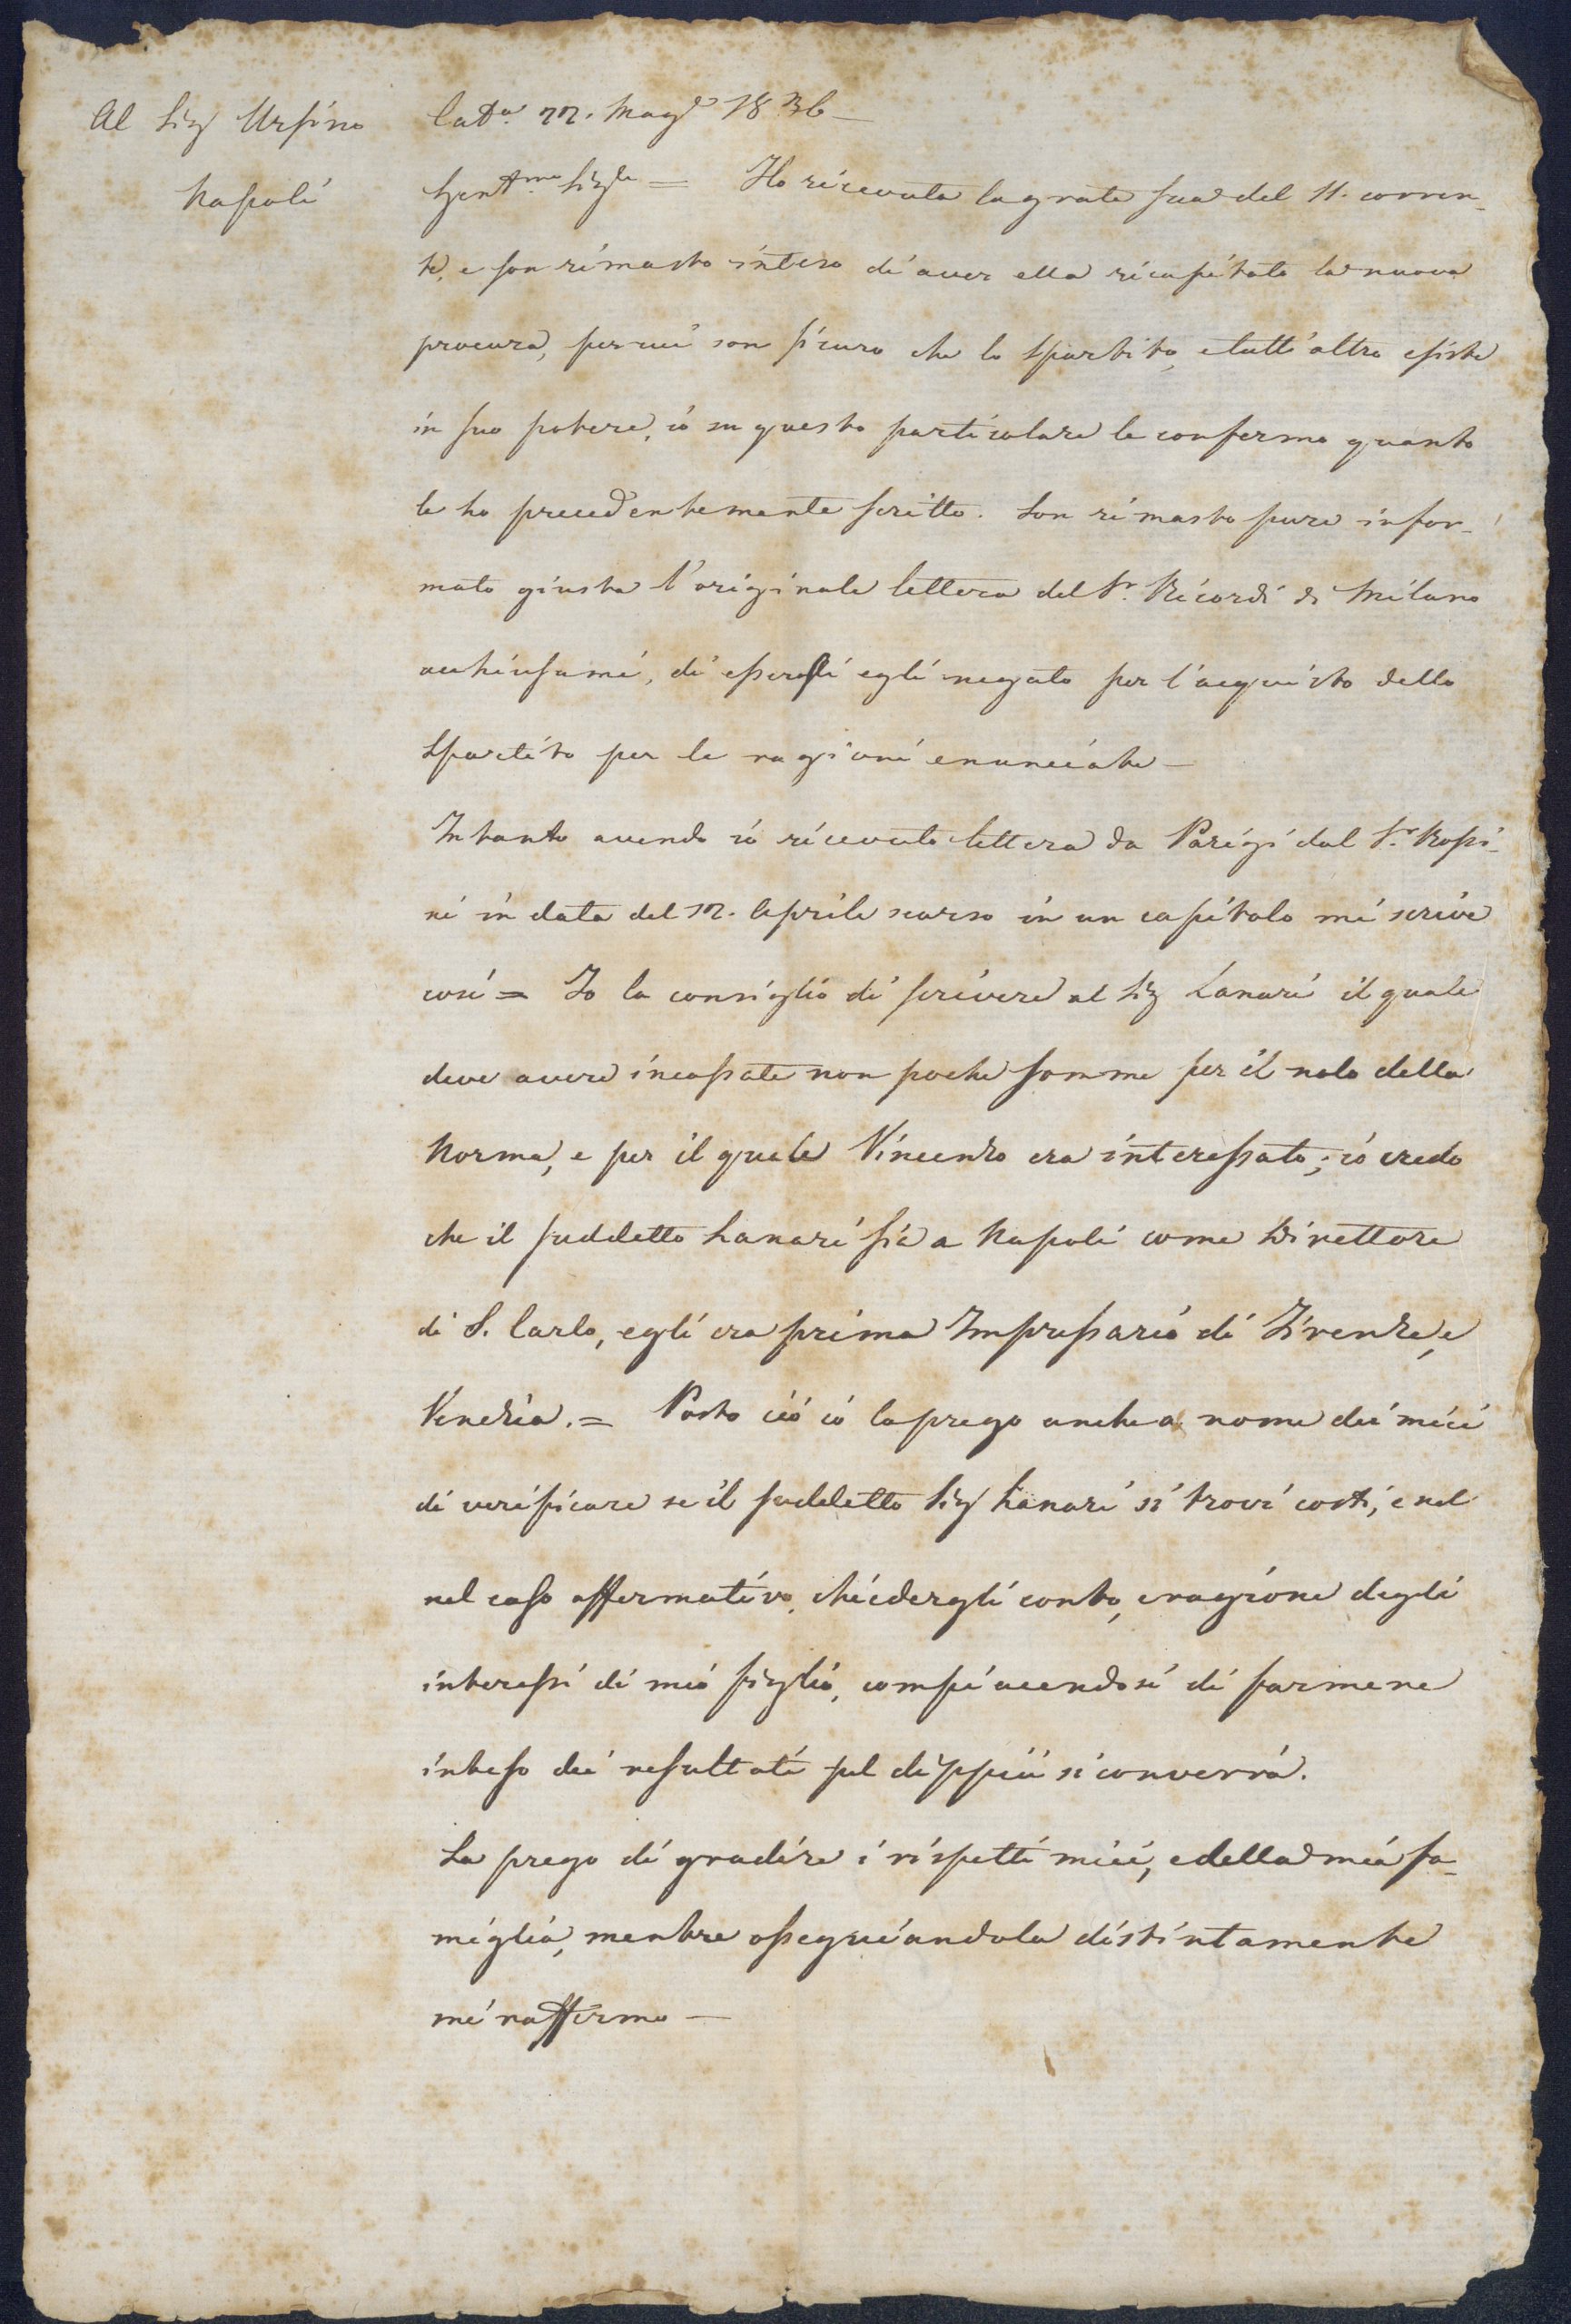 Al Sig Ursino
Napoli
Cat.a 22. Mag.o 1836 —
Gent.mo Sig.re = Ho ricevuta la grata sua del 11. corren-
te, e son rimasto inteso di aver ella ricapitato la nuova
procura, per cui son sicuro che lo Spartito, e tutt'altro esiste
in suo potere, io su questo particolare le confermo quanto
le ho precedentemente scritto. Son rimasto pure infor-
mato giusta l'originale lettera del S.r Ricordi di Milano
acchiusami, di essersi egli negato per l'acquisto dello
Spartito per le ragioni enunciate —
Intanto avendo io ricevuto lettera da Parigi dal S.r Rossi-
ni in data del 12. Aprile scorso in un capitolo mi scrive
così = Io la consiglio di scrivere al Sig Lanari il quale
deve avere incassate non poche somme per il nolo della
Norma, e per il quale Vincenzo era interessato; io credo
che il suddetto Lanari sia a Napoli come Direttore
di S. Carlo, egli era prima Impressario di Firenze, e
Venezia. = Posto ciò io la prego anche a nome dei miei
di verificare se il suddetto Sig Lanari si trovi costì, e nel
nel caso affermativo, chiedergli conto, e ragione degli
interessi di mio figlio, compiacendosi di farmene
inteso dei resultati sul dippiù si converrà.
La prego di gradire i rispetti miei, e della mia fa-
miglia, mentre ossequiandola distintamente
mi raffermo —